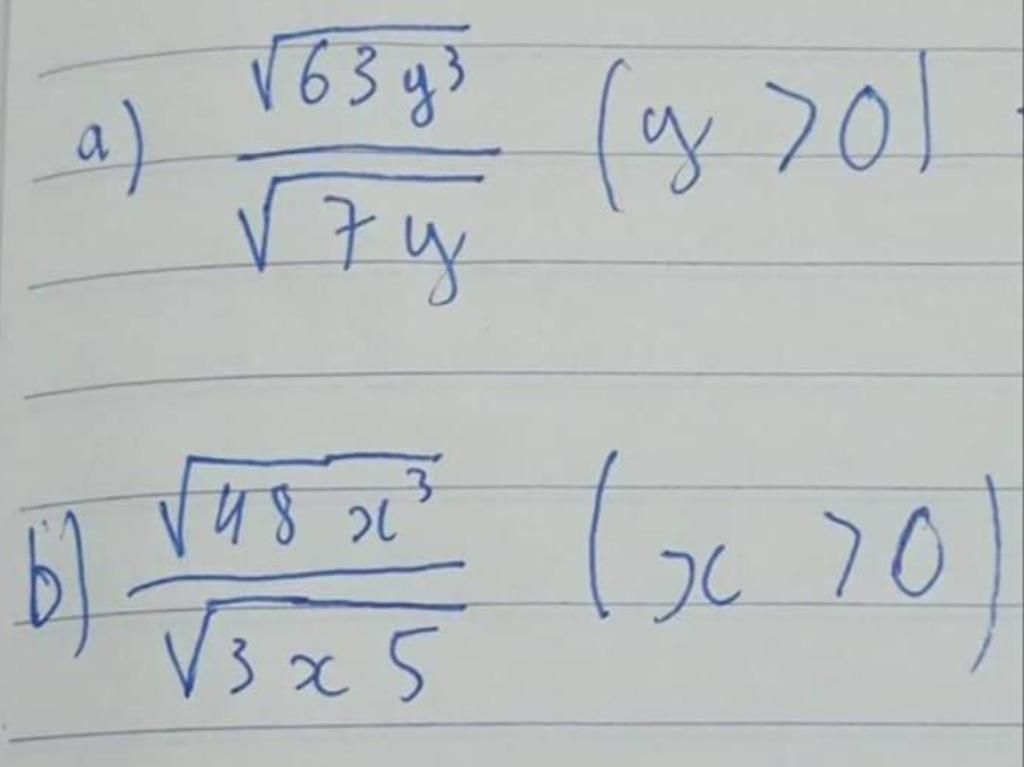 a) √63y³ / √7y (y > 0)
b) √48x³ / √3x5 (x > 0)